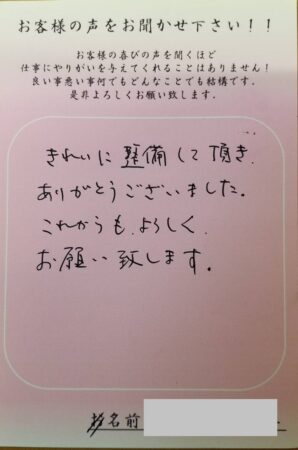 お客様の声をお聞かせ下さい！！
お客様の喜びの声を聞くほど
仕事にやりがいを与えてくれることはありません！
良い事悪い事何でもどんなことでも結構です．
是非よろしくお願い致します．
きれいに整備して頂き、
ありがとうございました。
これからも、よろしく、
お願い致します。
お名前